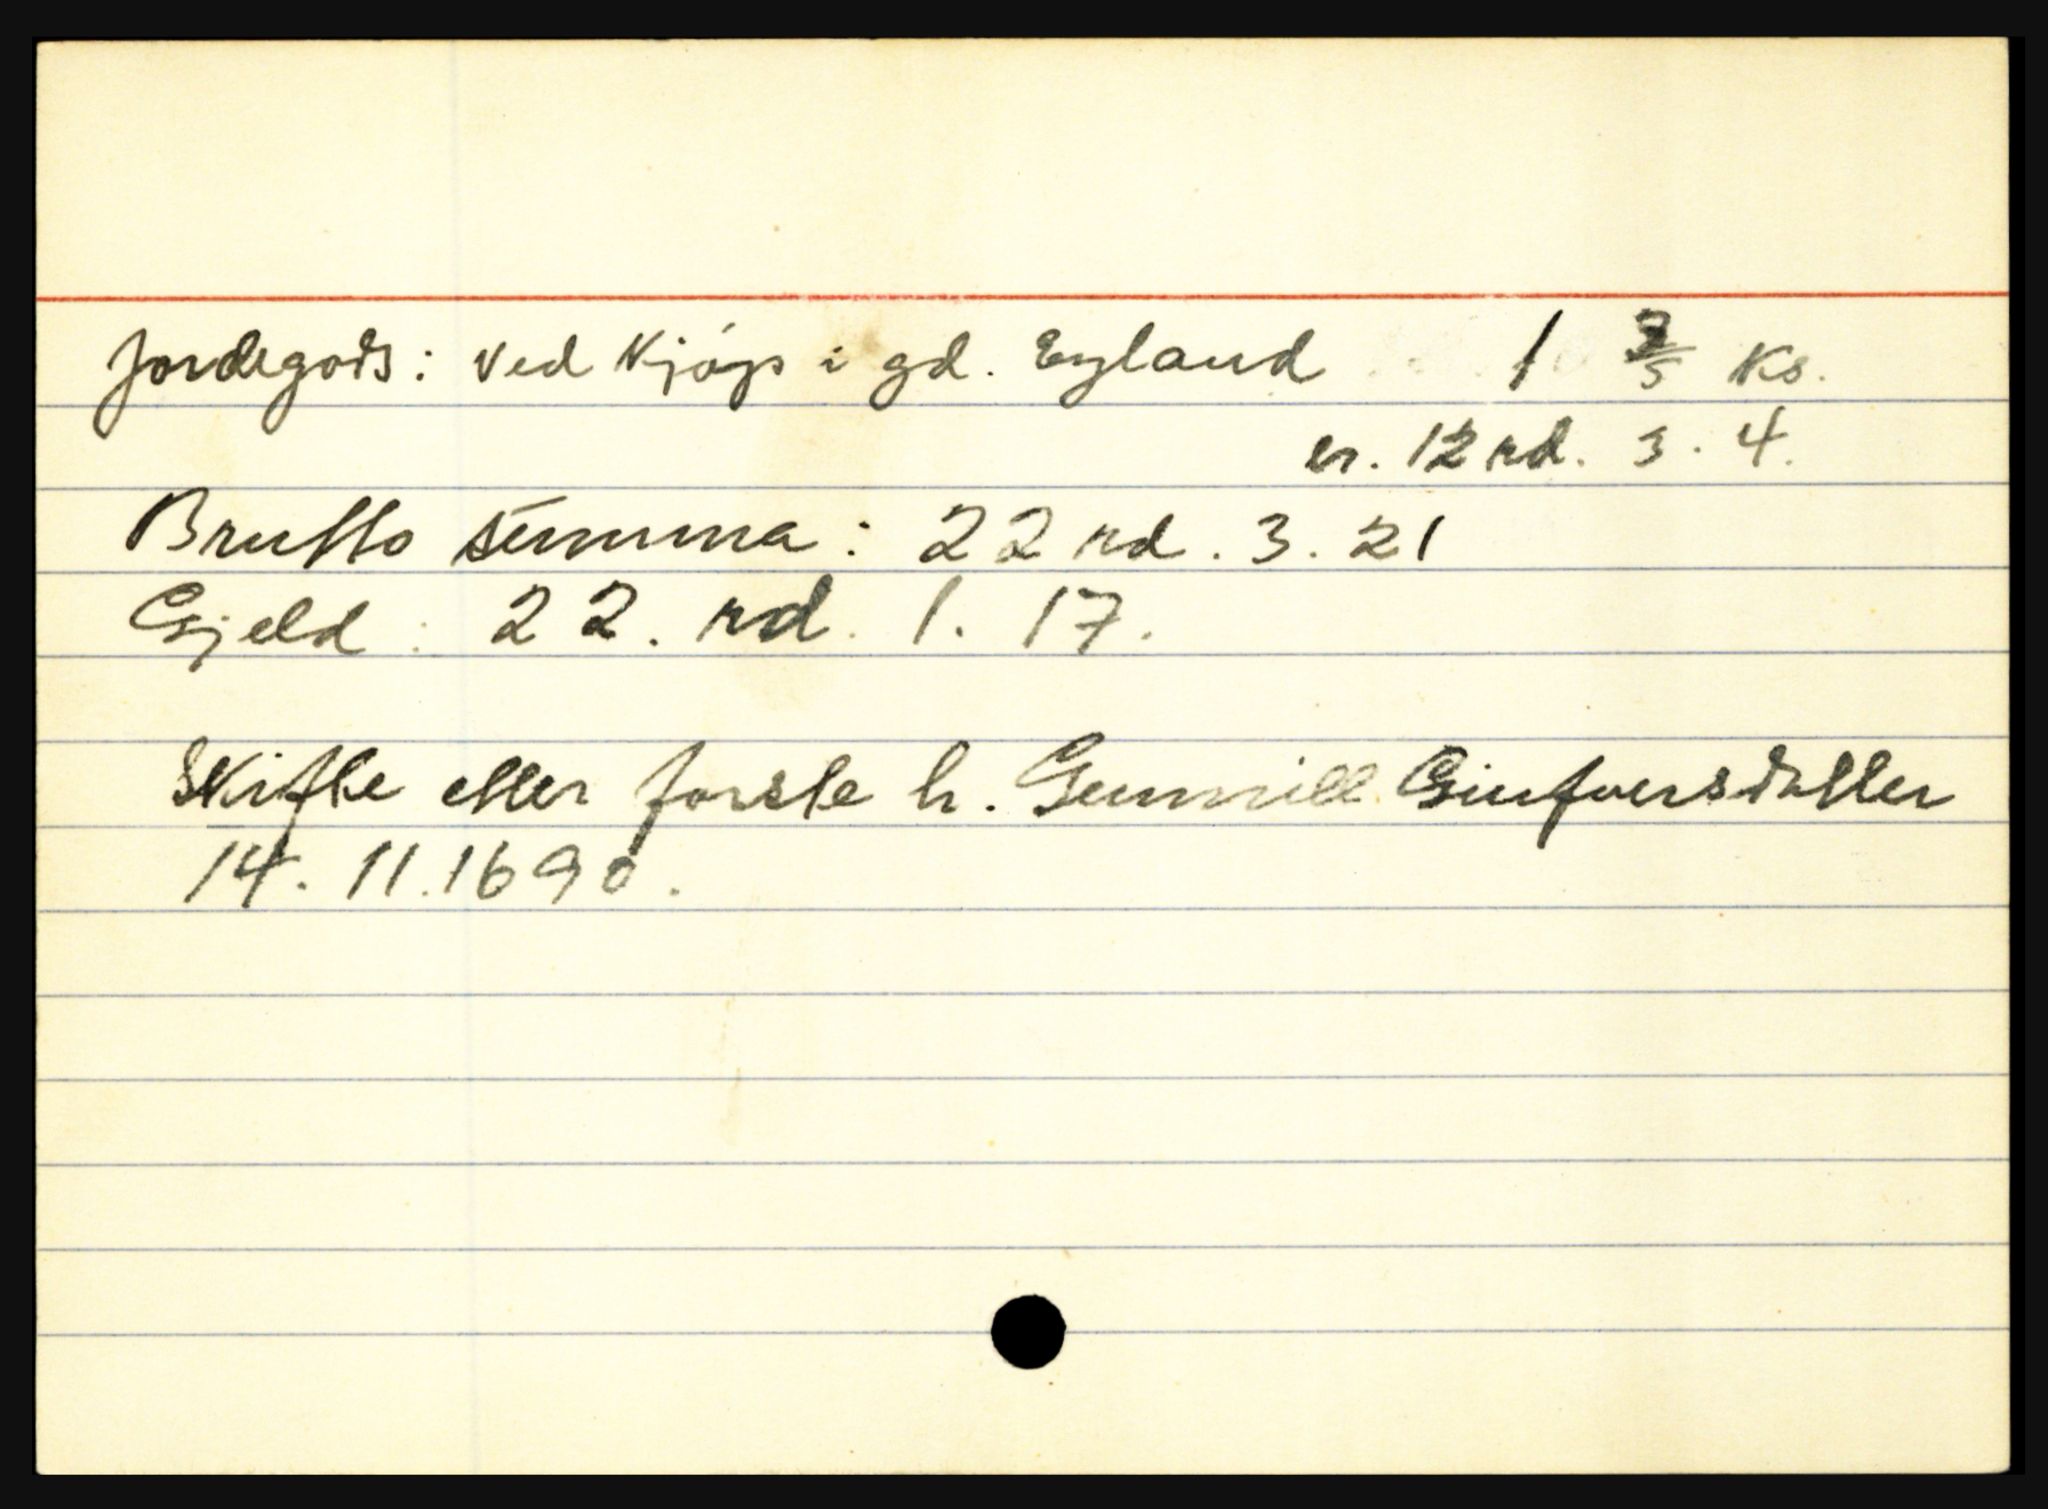 Jordegods: ved Kjóp i gd. Eyland 1 2/5 Ks.
er. 12 rd. 3. 4.
Brutto summa: 22 rd. 3. 21
Gjeld: 22. rd. 1. 17.
Skifte etter forste h. Gunnill Giufversdatter
14. 11. 1690.